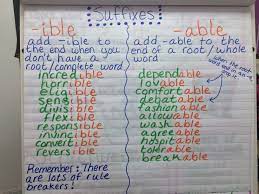 Suffixes
-ible
add -ible to
the end when you
don't have a
root/complete word
incredible
horrible
eligible
sensible
divisible
flexible
responsible
invincible
convertible
reversible
Remember: There
are lots of rule
breakers!
-able
add -able to the
end of a root/whole
word
dependable
lovable
comfortable
debatable
fashionable
allowable
washable
agreeable
habitable
tolerable
breakable